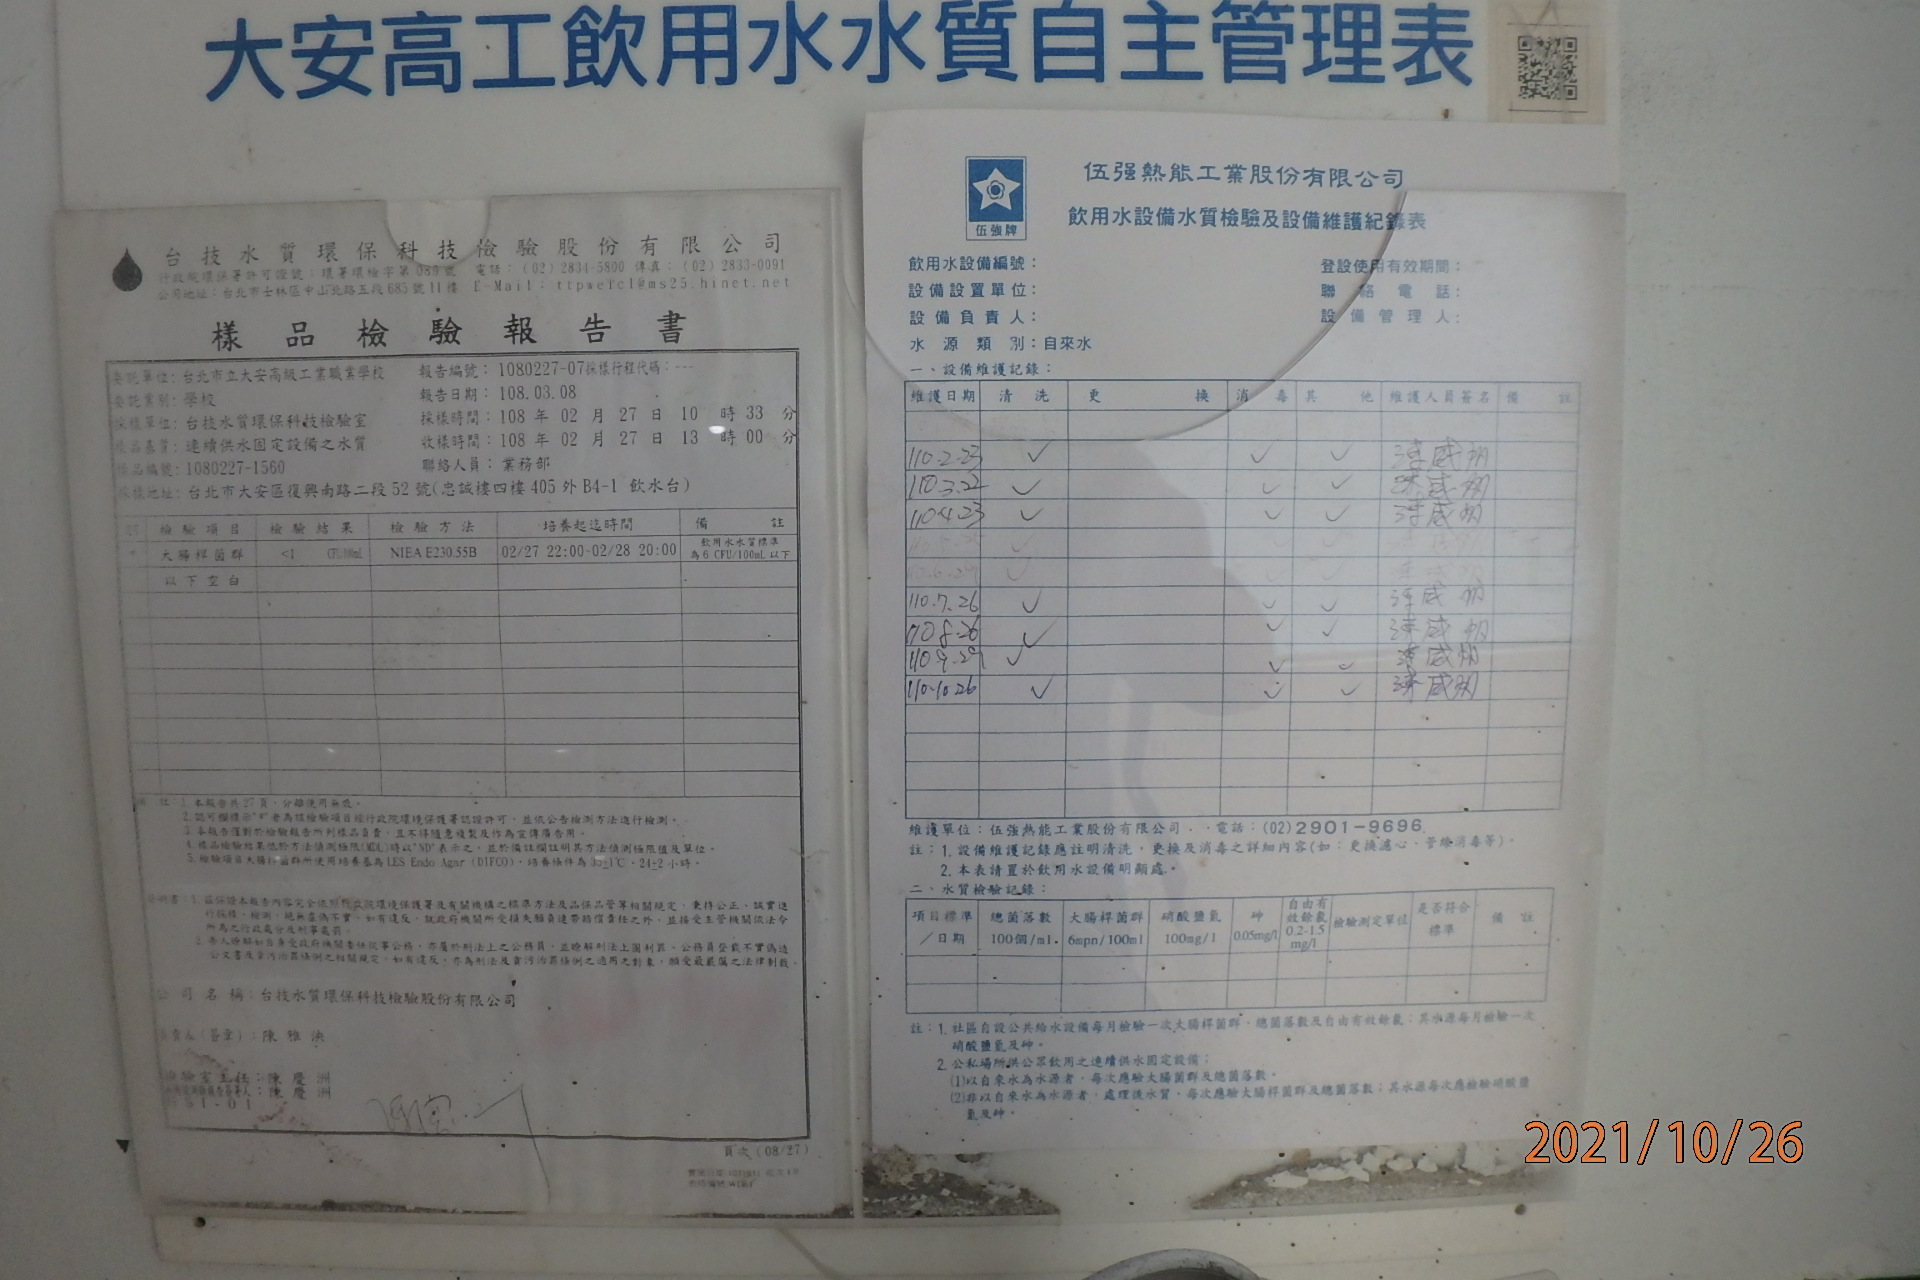 大安高工飲用水水質自主管理表
台技水質環保科技檢驗股份有限公司
行政院環保署許可證號：環署環檢字第089號 電話：(02)2834-5800 傳真：(02)2833-0091
公司地址：台北市士林區中山北路五段685號11樓 E-Mail：ttpwercl@ms25.hinet.net
樣品檢驗報告書
委託單位：台北市立大安高級工業職業學校
委託業別：學校
採樣單位：台技水質環保科技檢驗室
樣品基質：連續供水固定設備之水質
樣品編號：1080227-1560
採樣地址：台北市大安區復興南路二段52號(忠誠樓四樓405外B4-1 飲水台)
報告編號：1080227-07採樣行程代碼：---
報告日期：108.03.08
採樣時間：108 年 02 月 27 日 10 時 33 分
收樣時間：108 年 02 月 27 日 13 時 00 分
聯絡人員：業務部
檢驗項目 檢驗結果 檢驗方法 培養起迄時間 備註
* 大腸桿菌群 <1 CFU/100mL NIEA E230.55B 02/27 22:00-02/28 20:00 飲用水水質標準
為6 CFU/100mL以下
以下空白
註：1.本報告共27頁，分離使用無效。
2.認可欄標示"*"者為該檢驗項目經行政院環境保護署認證許可，並依公告檢測方法進行檢測。
3.本報告僅對於檢驗報告所列樣品負責，且不得隨意複製及作為宣傳廣告用。
4.樣品檢驗結果低於方法偵測極限(MDL)時以"ND"表示之，並於備註欄註明其方法偵測極限值及單位。
5.檢驗項目大腸桿菌群所使用培養基為LES Endo Agar (DIFCO)，培養條件為35±1℃，24±2小時。
公司名稱：台技水質環保科技檢驗股份有限公司
負責人(簽章)：陳雅泱
檢驗室主任：陳慶洲
陳慶洲
頁次(08/27)
伍強牌
伍强熱能工業股份有限公司
飲用水設備水質檢驗及設備維護紀錄表
飲用水設備編號：
設備設置單位：
設備負責人：
水源類別：自來水
登設使用有效期間：
聯絡電話：
設備管理人：
一、設備維護記錄：
維護日期 清洗 更換 消毒 其他 維護人員簽名 備註
110.2.23 ✓ ✓ ✓
110.3.22 ✓ ✓ ✓
110.4.23 ✓ ✓ ✓
110.7.26 ✓ ✓ ✓
110.8.26 ✓ ✓ ✓
110.9.29 ✓ ✓ ✓
110.10.26 ✓ ✓ ✓
維護單位：伍強熱能工業股份有限公司．．電話：(02)2901-9696
註：1.設備維護記錄應註明清洗，更換及消毒之詳細內容(如：更換濾心、管線消毒等)。
2.本表請置於飲用水設備明顯處。
二、水質檢驗記錄：
項目標準／日期 總菌落數 100個/ml. 大腸桿菌群 6mpn/100ml 硝酸鹽氮 100mg/l 砷 0.05mg/l 自由有效餘氯 0.2-1.5 mg/l 檢驗測定單位 是否符合標準 備註
註：1.社區自設公共給水設備每月檢驗一次大腸桿菌群，總菌落數及自由有效餘氯；其水源每月檢驗一次
硝酸鹽氮及砷。
2.公私場所供公眾飲用之連續供水固定設備；
(1)以自來水為水源者，每次應驗大腸菌群及總菌落數。
(2)非以自來水為水源者，處理後水質，每次應驗大腸桿菌群及總菌落數；其水源每次應檢驗硝酸鹽
氮及砷。
2021/10/26